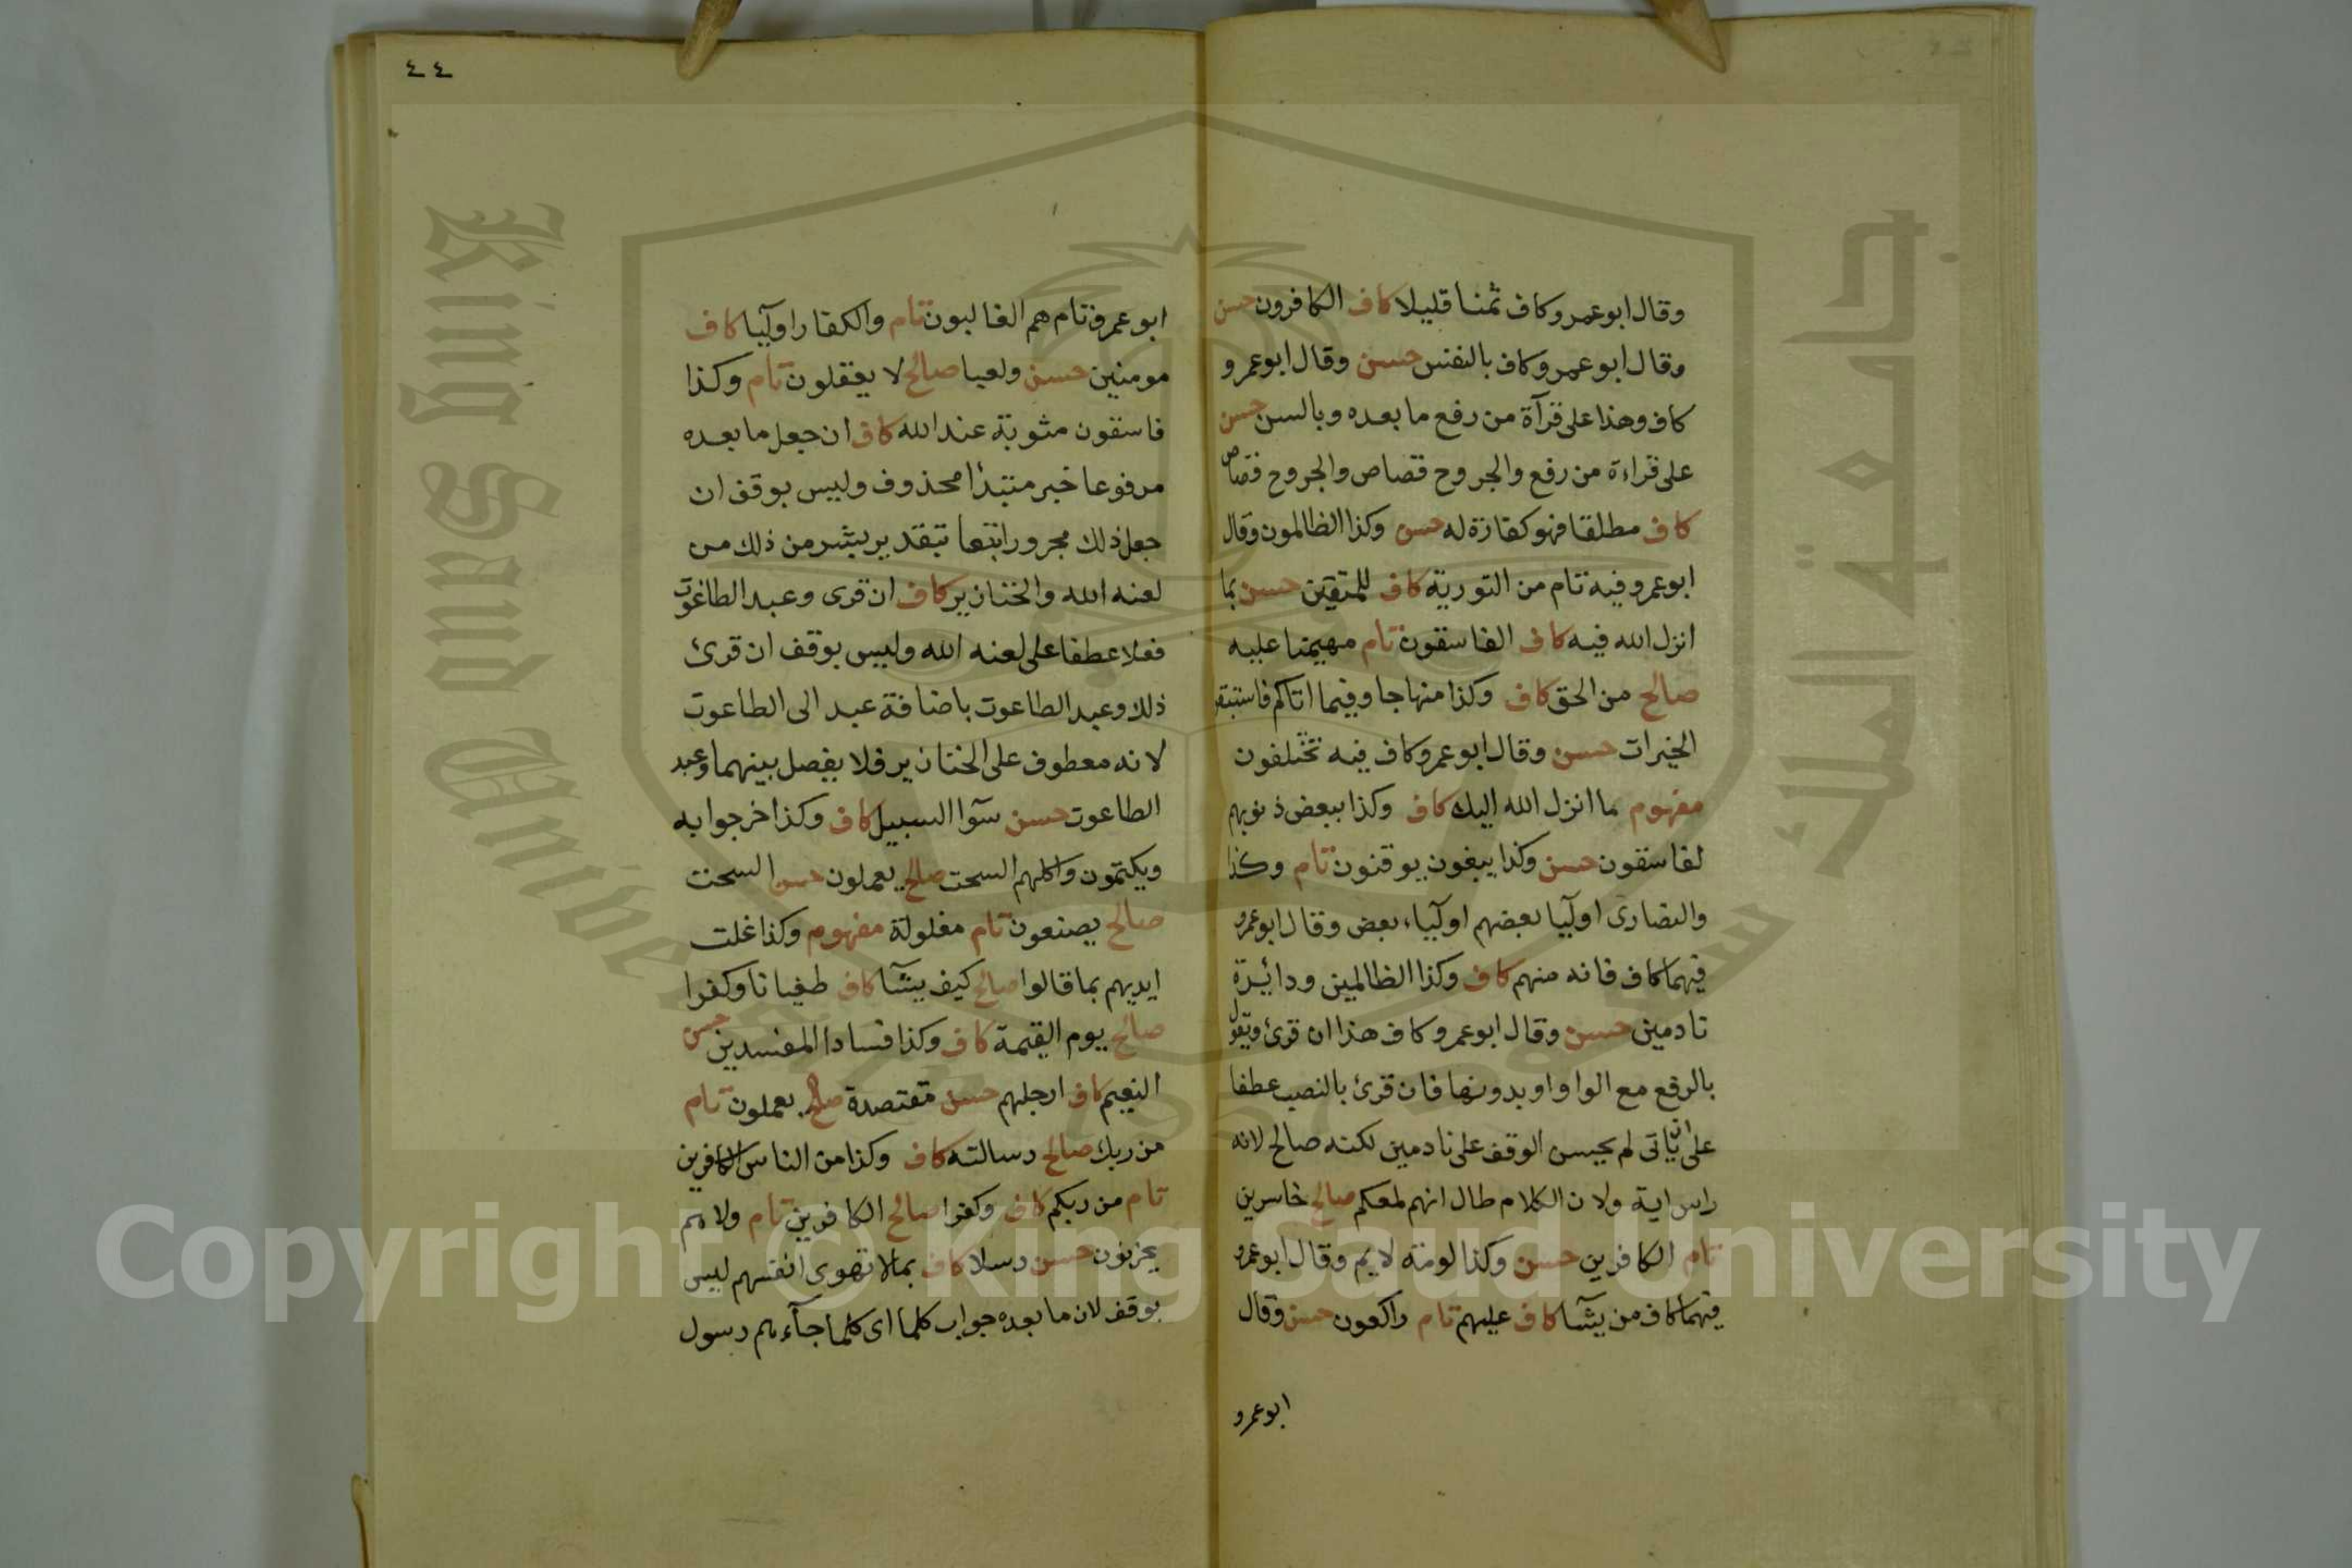 وقال ابو عمرو كاف ثمنا قليلا كاف الكافرون حسن
وقال ابو عمرو كاف بالنفس حسن وقال ابو عمرو
كاف وهذا على قرآة من رفع ما بعده وبالسن حسن
على قراءة من رفع والجروح قصاص والجروح قصاص
كاف مطلقا فهو كفارة له حسن وكذا الظالمون وقال
ابو عمرو فيه تام من التورية كاف للمتقين حسن بما
انزل الله فيه كاف الفاسقون تام مهيمنا عليه
صالح من الحق كاف وكذا منهاجا وفيما اتاكم فاستبقوا
الخيرات حسن وقال ابو عمرو كاف فيه تختلفون
مفهوم ما انزل الله اليك كاف وكذا ببعض ذنوبهم
لفاسقون حسن وكذا يبغون يوقنون تام وكذا
والنصارى اوليآ بعضهم اوليآء بعض وقال ابو عمرو
فيهما كاف فانه منهم كاف وكذا الظالمين ودائرة
نادمين حسن وقال ابو عمرو كاف هذا ان قرئ ويقول
بالرفع مع الواو او بدونها فان قرئ بالنصب عطفا
على ان ياتى لم يحسن الوقف على نادمين لكنه صالح لانه
راس اية ولان الكلام طال انهم لمعكم صالح خاسرين
تام الكافرين حسن وكذا لومة لايم وقال ابو عمرو
فيهما كاف من يشآ كاف عليهم تام راكعون حسن وقال
ابو عمرو
٤٤
ابو عمرو تام هم الغالبون تام والكفار اوليآ كاف
مومنين حسن ولعبا صالح لا يعقلون تام وكذا
فاسقون مثوبة عند الله كاف ان جعل ما بعده
مرفوعا خبر مبتدأ محذوف وليس بوقف ان
جعل ذلك مجرورا تبعا بتقدير بشر من ذلك من
لعنه الله والخنازير كاف ان قرى وعبد الطاغوت
فعلا عطفا على لعنه الله وليس بوقف ان قرئ
ذلك وعبد الطاعوت باضافة عبد الى الطاعوت
لانه معطوف على الخنازير فلا يفصل بينهما وعبد
الطاعوت حسن سوآ السبيل كاف وكذا خرجوا به
ويكتمون واكلهم السحت صالح يعملون حسن السحت
صالح يصنعون تام مغلولة مفهوم وكذا غلت
ايديهم بما قالوا صالح كيف يشآ كاف طغيانا وكفرا
صالح يوم القيمة كاف وكذا فسادا المفسدين حسن
النعيم كاف ارجلهم حسن مقتصدة صالح يعملون تام
من ربك صالح رسالته كاف وكذا من الناس الكافرين
تام من ربكم كاف وكفرا صالح الكافرين تام ولا هم
يحزنون حسن رسلا كاف بما لا تهوى انفسهم ليس
بوقف لان ما بعده جواب كلما اى كلما جآءهم رسول
Copyright © King Saud University
King Saud University
جامعة الملك سعود